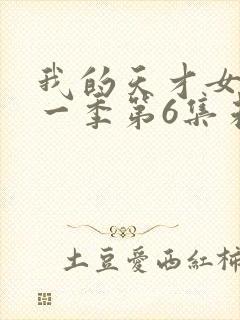 我的天才女
一季第6集
土豆愛西紅柿